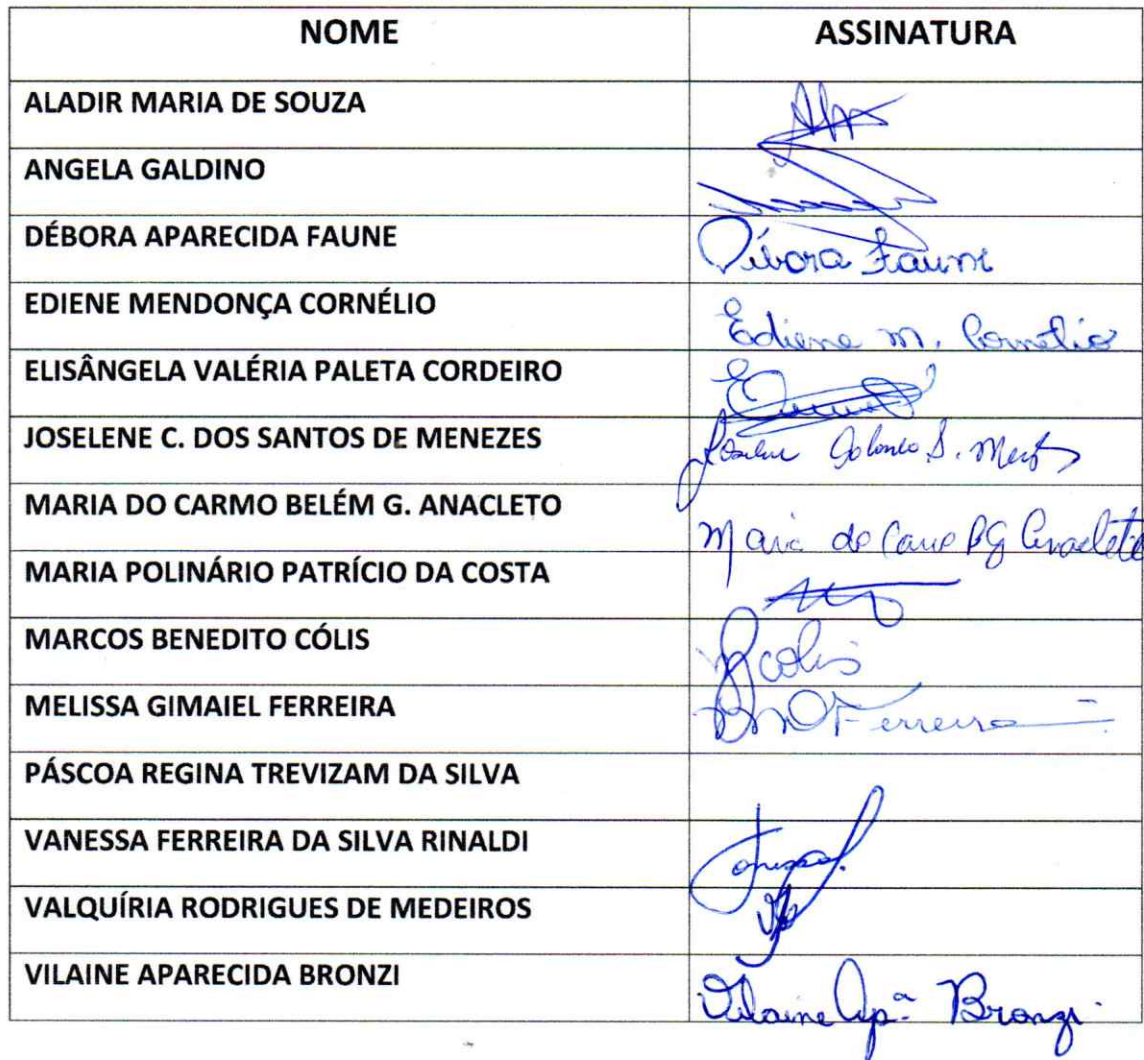 NOME ASSINATURA
ALADIR MARIA DE SOUZA
ANGELA GALDINO
DÉBORA APARECIDA FAUNE Débora Faune
EDIENE MENDONÇA CORNÉLIO Ediene M. Cornélio
ELISÂNGELA VALÉRIA PALETA CORDEIRO
JOSELENE C. DOS SANTOS DE MENEZES
MARIA DO CARMO BELÉM G. ANACLETO Maria do Carmo BG Anacleto
MARIA POLINÁRIO PATRÍCIO DA COSTA
MARCOS BENEDITO CÓLIS colis
MELISSA GIMAIEL FERREIRA Ferreira
PÁSCOA REGINA TREVIZAM DA SILVA
VANESSA FERREIRA DA SILVA RINALDI
VALQUÍRIA RODRIGUES DE MEDEIROS
VILAINE APARECIDA BRONZI Vilaine Apª Bronzi